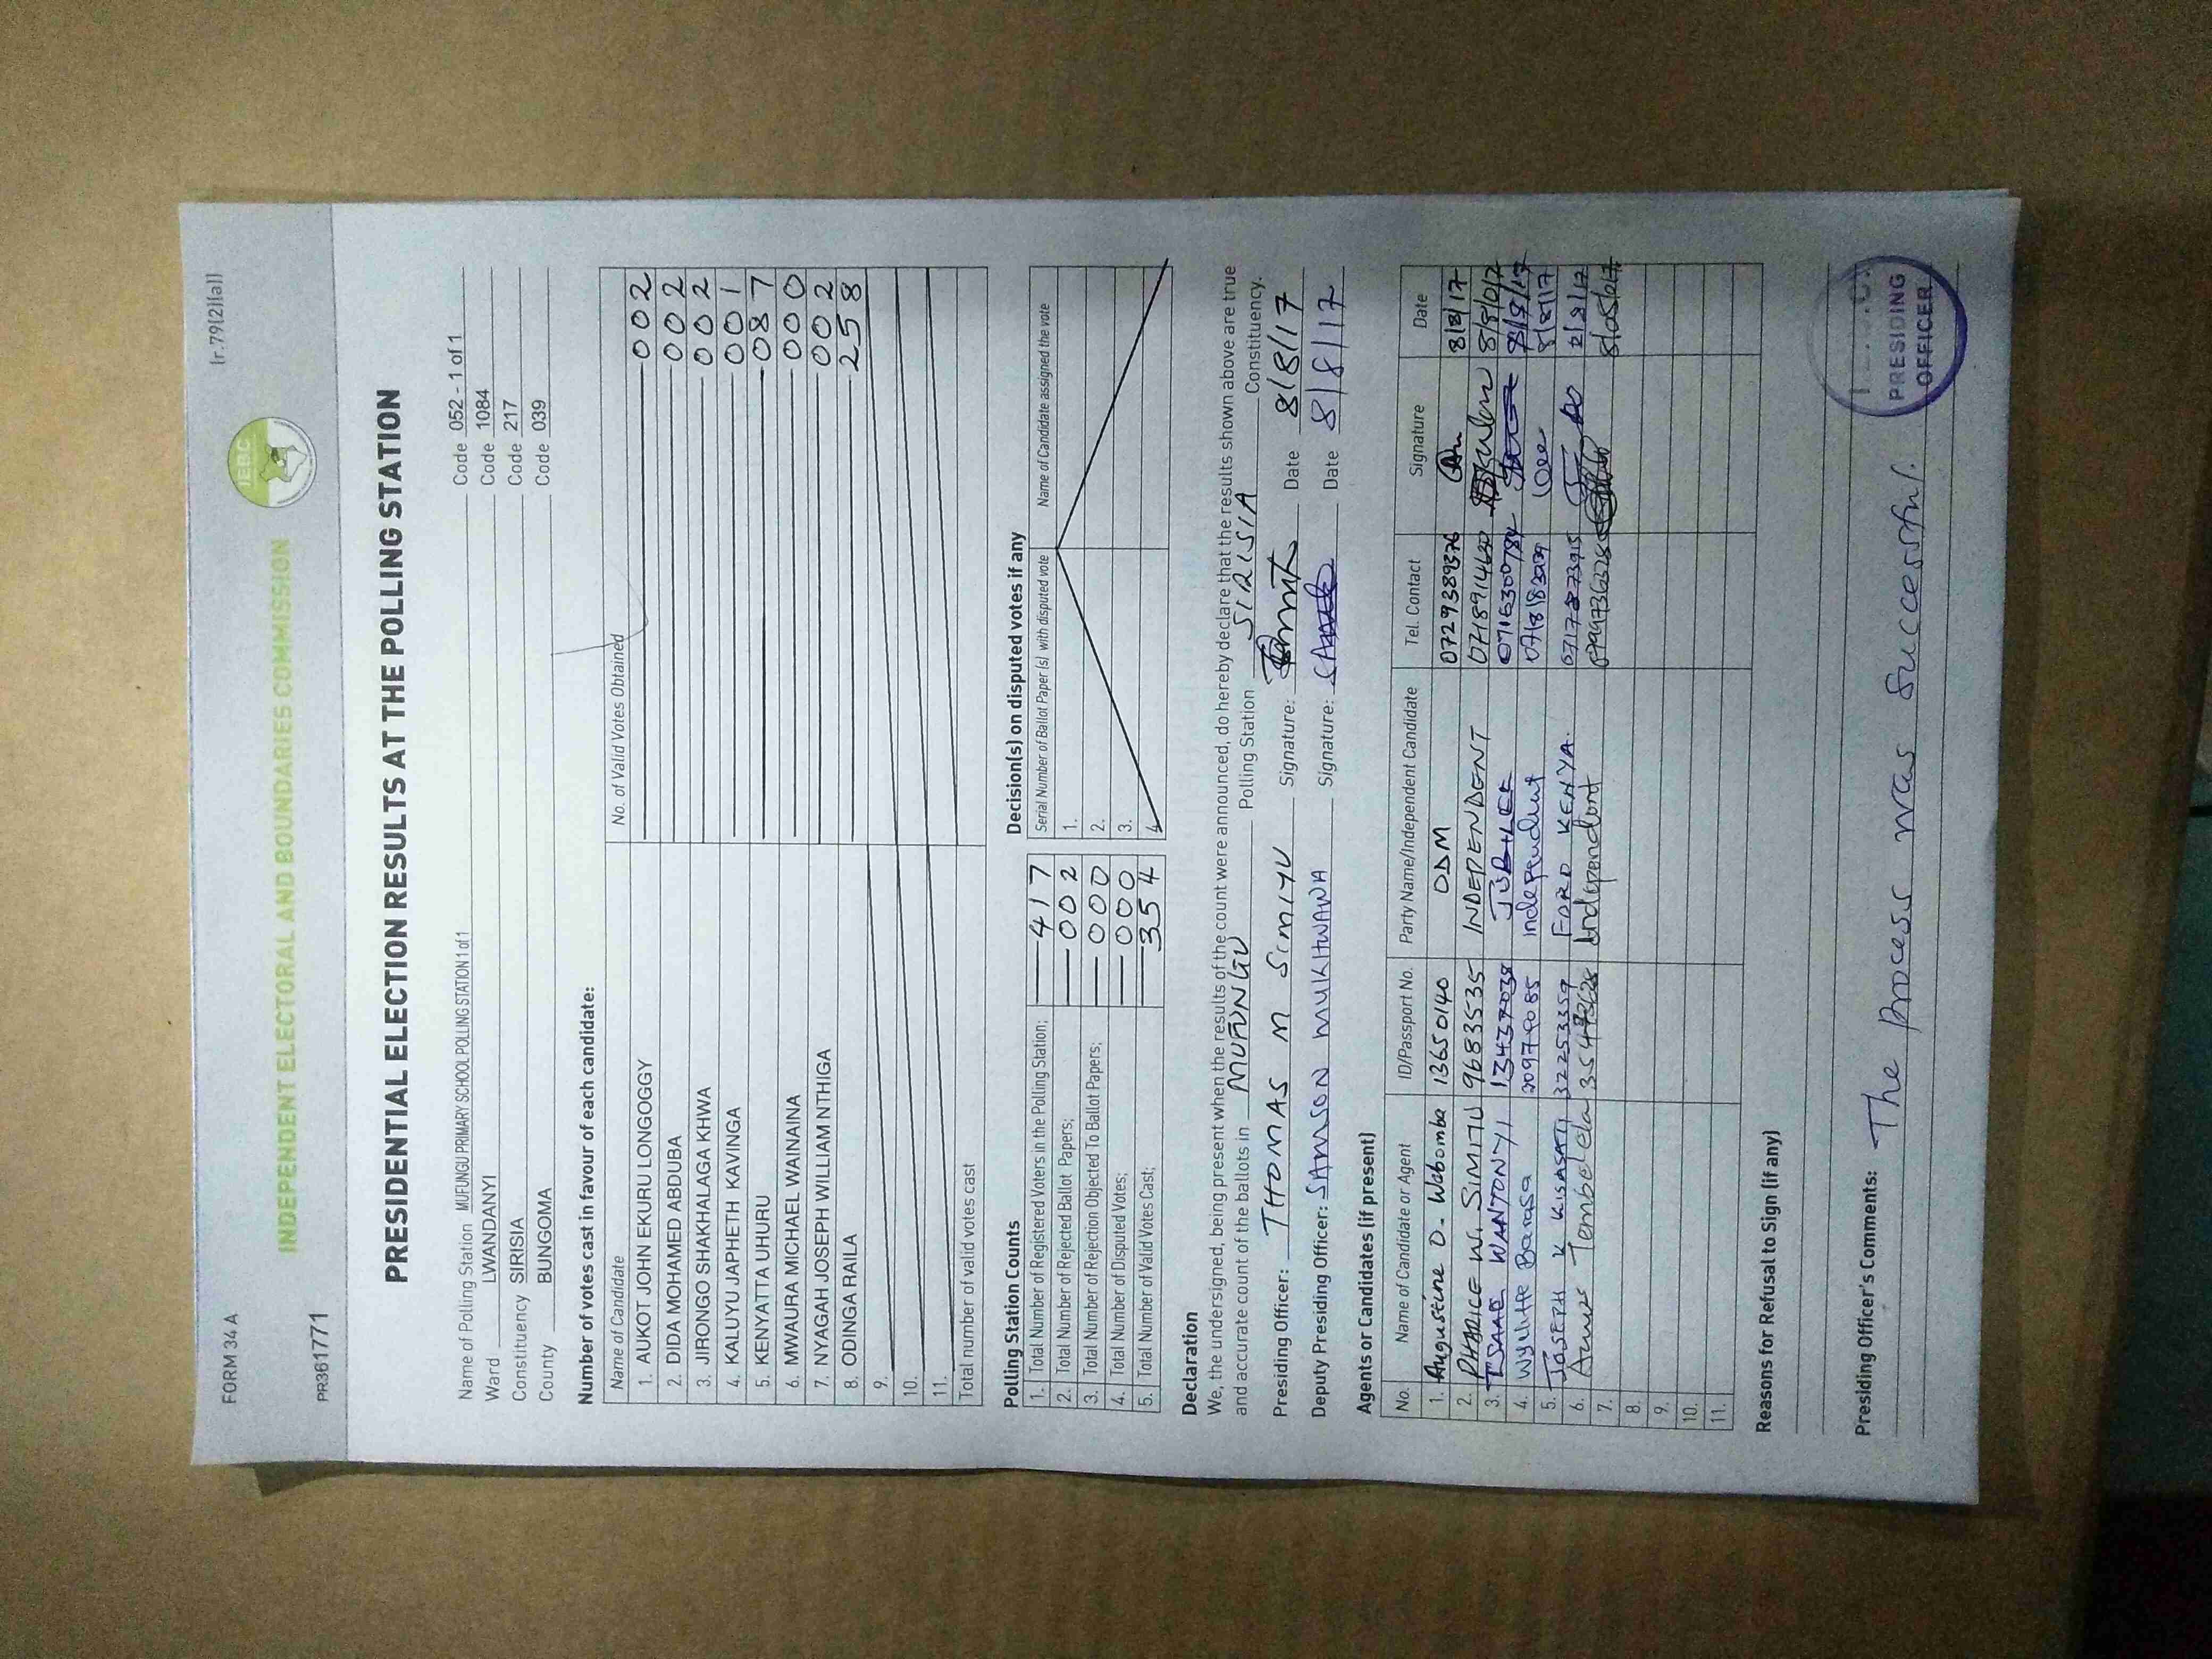 FORM 34 A
[r.79(2)(a)]
IEBC
INDEPENDENT ELECTORAL AND BOUNDARIES COMMISSION
PR361771
PRESIDENTIAL ELECTION RESULTS AT THE POLLING STATION
Name of Polling Station MUFUNGU PRIMARY SCHOOL POLLING STATION 1 of 1 Code 052 - 1 of 1
Ward LWANDANYI Code 1084
Constituency SIRISIA Code 217
County BUNGOMA Code 039
Number of votes cast in favour of each candidate:
Name of Candidate No. of Valid Votes Obtained
1. AUKOT JOHN EKURU LONGOGGY 002
2. DIDA MOHAMED ABDUBA 002
3. JIRONGO SHAKHALAGA KHWA 002
4. KALUYU JAPHETH KAVINGA 001
5. KENYATTA UHURU 087
6. MWAURA MICHAEL WAINAINA 000
7. NYAGAH JOSEPH WILLIAM NTHIGA 002
8. ODINGA RAILA 258
9.
10.
11.
Total number of valid votes cast
Polling Station Counts
1. Total Number of Registered Voters in the Polling Station; 417
2. Total Number of Rejected Ballot Papers; 002
3. Total Number of Rejection Objected To Ballot Papers; 000
4. Total Number of Disputed Votes; 000
5. Total Number of Valid Votes Cast; 354
Decision(s) on disputed votes if any
Serial Number of Ballot Paper (s) with disputed vote Name of Candidate assigned the vote
1.
2.
3.
4.
Declaration
We, the undersigned, being present when the results of the count were announced, do hereby declare that the results shown above are true
and accurate count of the ballots in MUFUNGU Polling Station SIRISIA Constituency.
Presiding Officer: THOMAS M SIMIYU Signature: Date 8/8/17
Deputy Presiding Officer: SAMSON MUKHWANA Signature: Date 8/8/17
Agents or Candidates (if present)
No. Name of Candidate or Agent ID/Passport No. Party Name/Independent Candidate Tel. Contact Signature Date
1. Augustine D. Webomba 13650140 ODM 0729389376 8/8/17
2. PHARICE W. SIMIYU 9683535 INDEPENDENT 8/8/017
3. ISAAC WANTONYI JUBILEE 8/8/17
4. Wyliffe Barasa Independent 8/8/17
5. JOSEPH K KISASATI FORD KENYA.
6. Tembelela Independent
7.
8.
9.
10.
11.
Reasons for Refusal to Sign (if any)
Presiding Officer's Comments: The process was successful.
PRESIDING
OFFICER